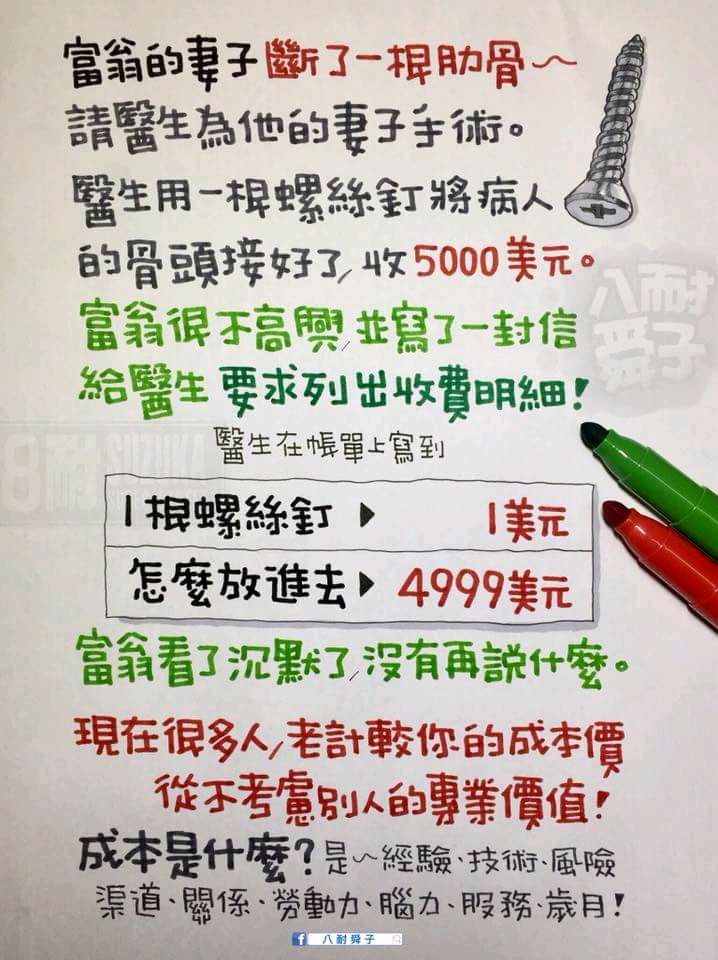 富翁的妻子斷了一根肋骨～
請醫生為他的妻子手術。
醫生用一根螺絲釘將病人
的骨頭接好了,收5000美元。
富翁很不高興,並寫了一封信
給醫生 要求列出收費明細!
醫生在帳單上寫到
1根螺絲釘▶ 1美元
怎麼放進去▶ 4999美元
富翁看了沉默了,沒有再説什麼。
現在很多人,老計較你的成本價
從不考慮別人的專業價值!
成本是什麼?是～經驗、技術、風險
渠道、關係、勞動力、腦力、服務、歲月!
八耐舜子
八耐舜子